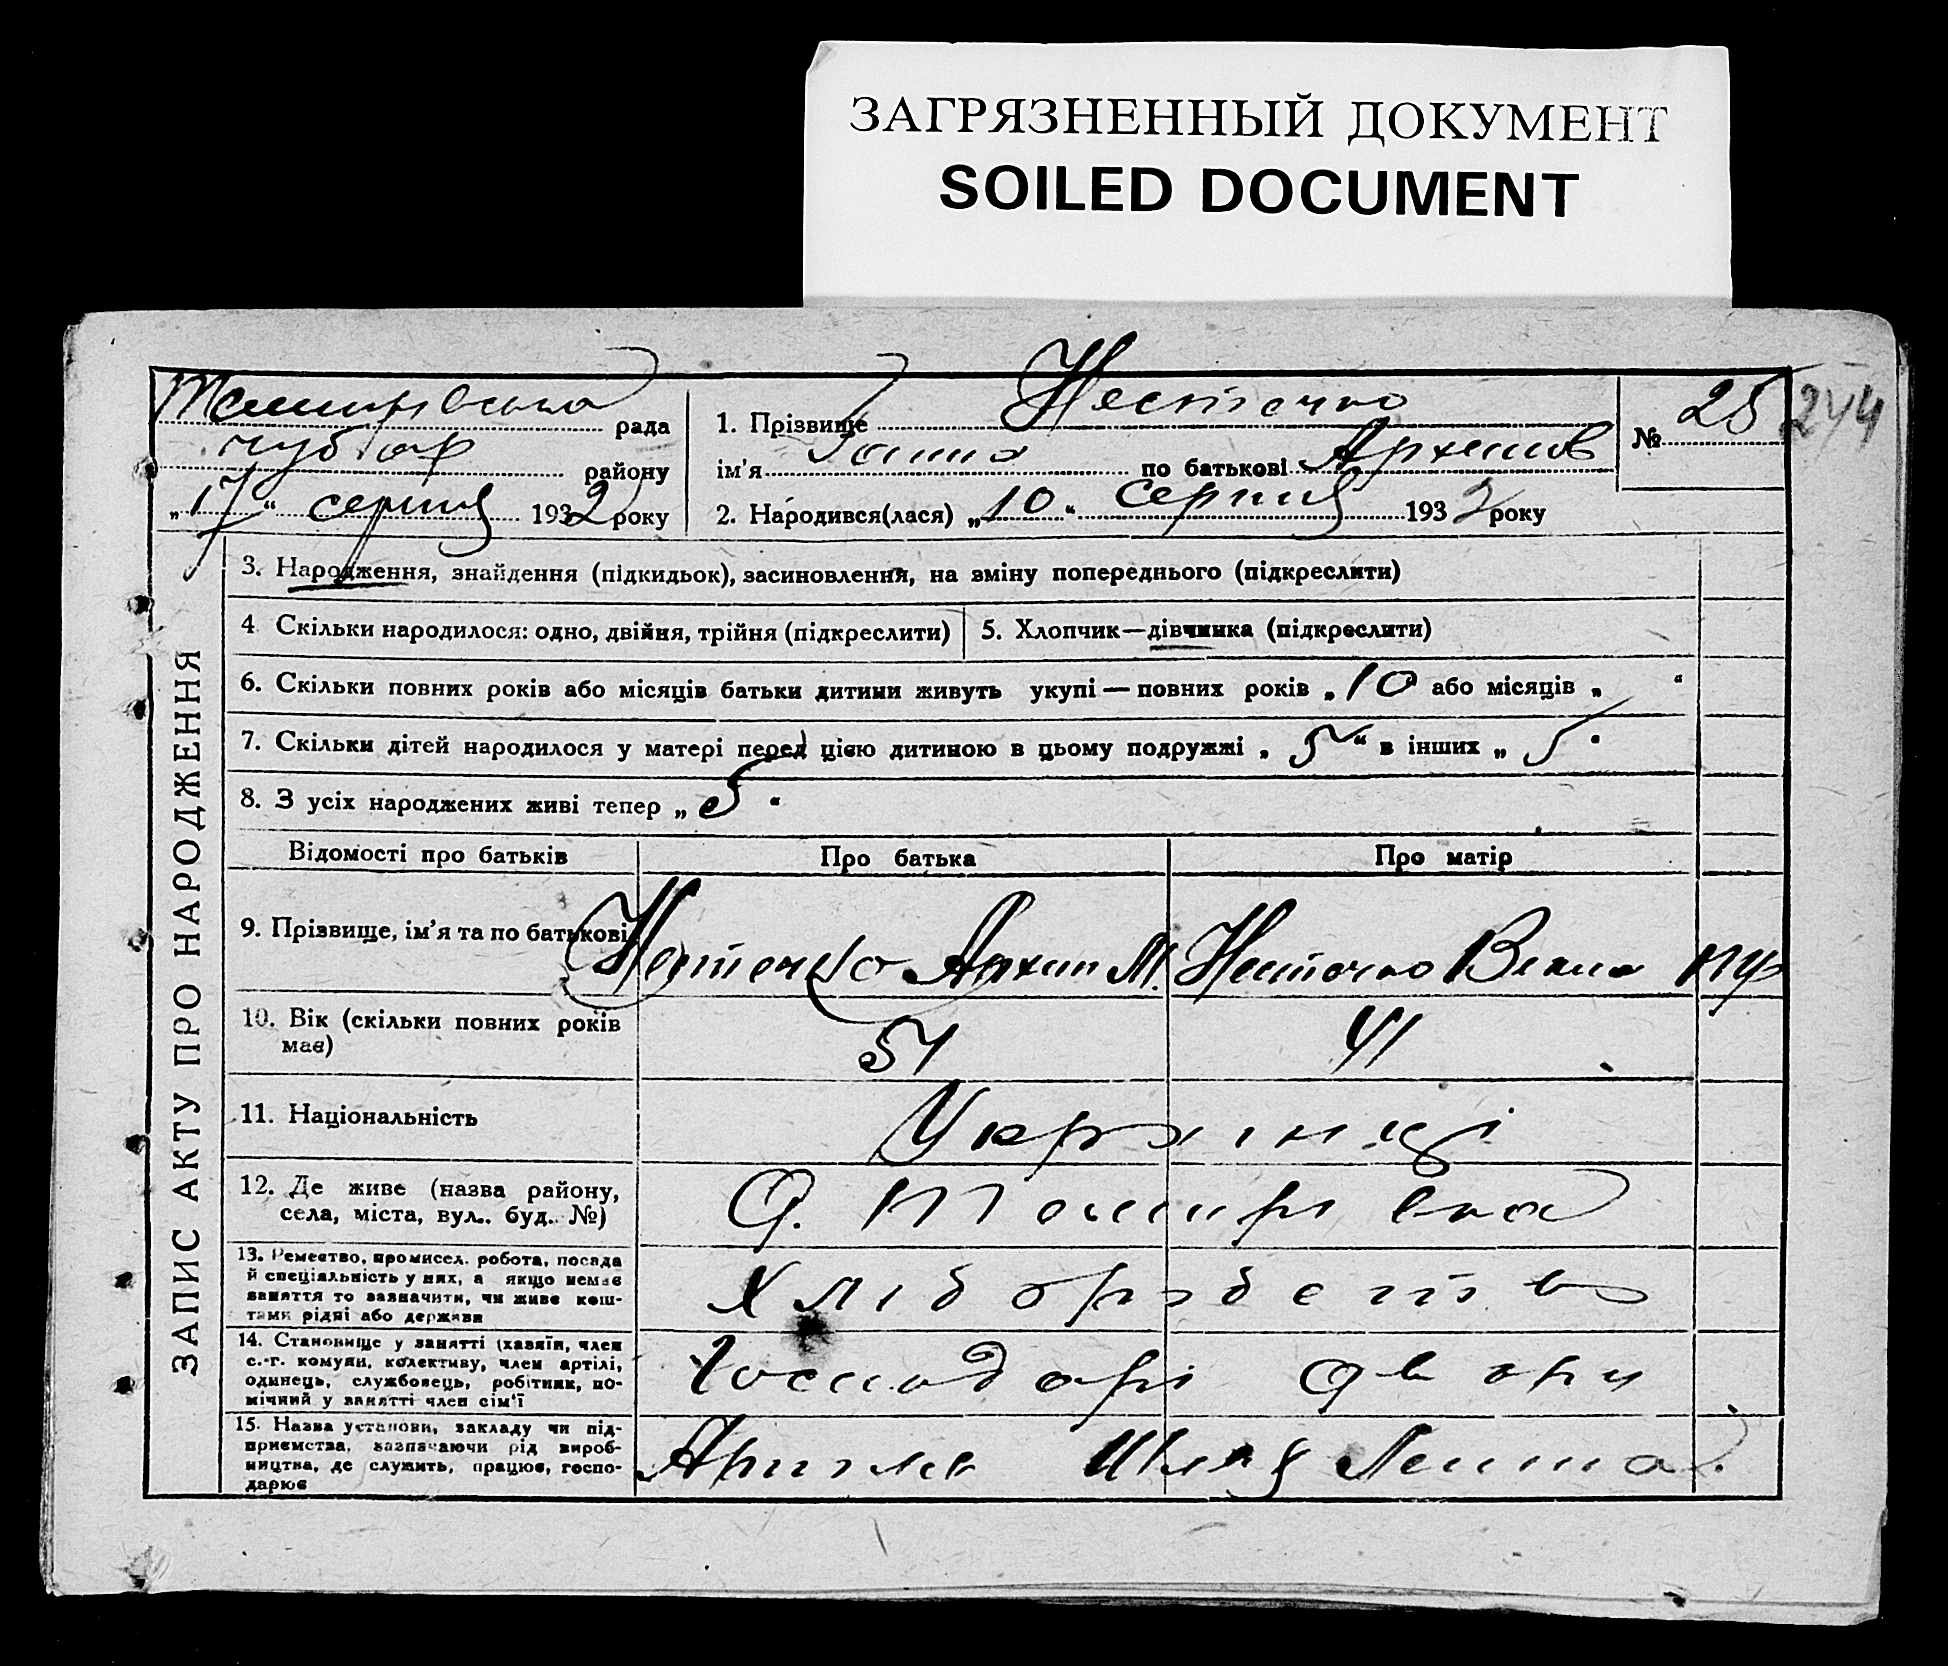 ЗАГРЯЗНЕННЫЙ ДОКУМЕНТ
SOILED DOCUMENT
рада
району
„17“ серпня 1932 року
1. Прізвище Нестечко
ім'я Ганна по батькові Архипов
2. Народився(лася) „10“ серпня 1932 року
№ 25
244
ЗАПИС АКТУ ПРО НАРОДЖЕННЯ
3. Народження, знайдення (підкидьок), засиновлення, на зміну попереднього (підкреслити)
4 Скільки народилося: одно, двійня, трійня (підкреслити)
5. Хлопчик—дівчинка (підкреслити)
6. Скільки повних років або місяців батьки дитини живуть укупі — повних років „10 або місяців „ “
7. Скільки дітей народилося у матері перед цією дитиною в цьому подружжі „ 5 “ в інших „
8. З усіх народжених живі тепер „ 5 “
Відомості про батьків
Про батька
Про матір
9. Прізвище, ім'я та по батькові
Нестечко Архип М.
Нестечко
10. Вік (скільки повних років має)
51
41
11. Національність
Українці
12. Де живе (назва району, села, міста, вул.. буд.. №)
13. Ремество, промисел. робота, посада й спеціяльність у них, а якщо немає заняття то зазначити, чи живе кош-тами рідні або держави
Хліборобство
14. Становище у занятті (хазяїн, член с.-г. комуни, колективу, член артілі, одинець, службовець, робітник, по-мічний у занятті член сім'ї
Господарі двору
15. Назва установи, закладу чи під-приємства, зазначаючи рід вироб-ництва, де служить, працює, госпо-дарює
Шлях Леніна